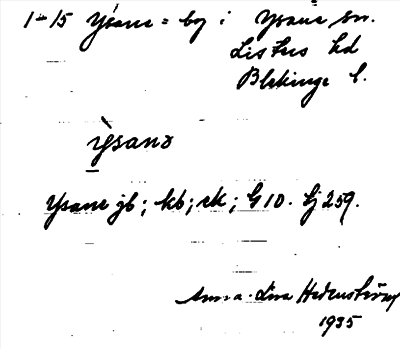 1-15 Ysane = by i Ysane sn.
Listers hd
Blekinge l.
ỳsanə
Ysane jb; kb; rk; G10. Ej 259.
Anna-Lisa Hedenström
1935